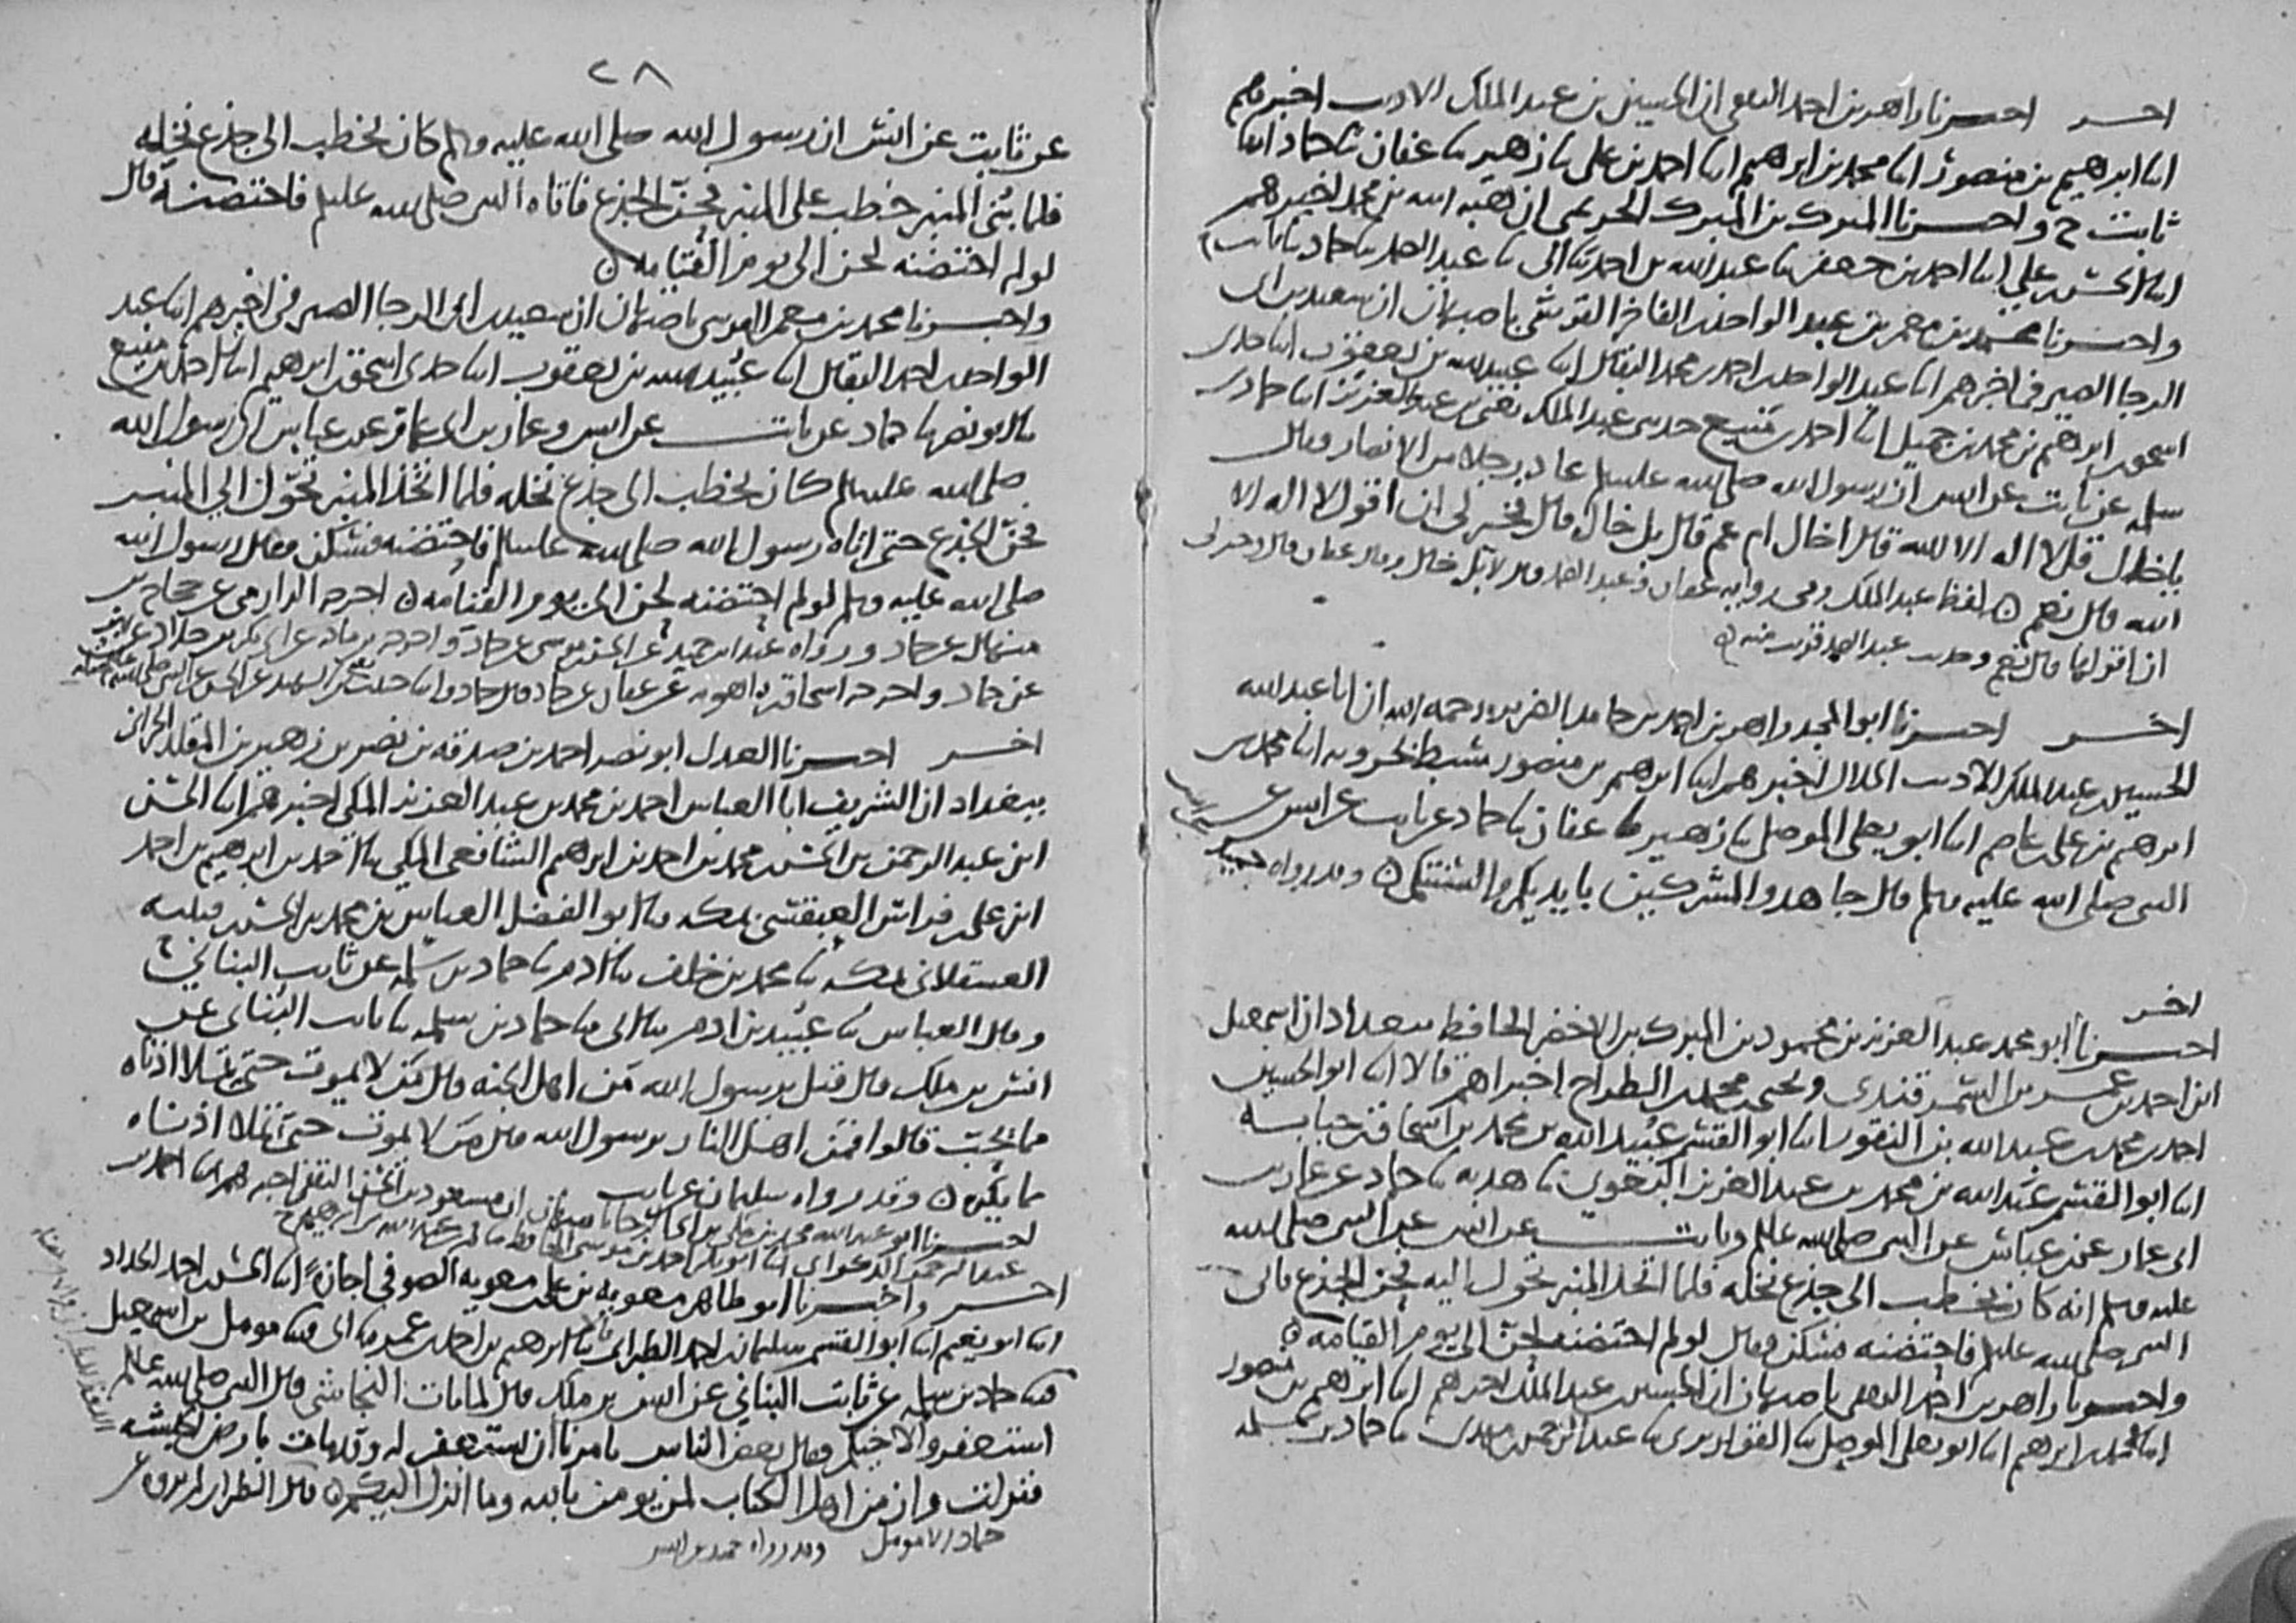 احر احبرنا زاهر بن احمد الثقفي ان الحسين بن عبد الملك الاديب اخبرهم
ابنا ابرهيم بن منصور ابنا محمد بن ابرهيم ابنا احمد بن علي ثنا زهير ثنا عفان ثنا حماد ابنا
ثابت ح واحبرنا المبرك بن المبرك الحريمي ان هبة الله بن محمد اخبرهم
ابنا الحسن بن علي ابنا احمد بن جعفر ثنا عبد الله بن احمد ثنا ابي ثنا عبد الصمد ثنا حماد ثنا ثابت ح
واحبرنا محمد بن معمر بن عبد الواحد بن الفاخر القرشي باصبهان ان سعيد بن ابي
الرجا الصيرفي اخبرهم ابنا عبد الواحد بن احمد بن محمد البقال ابنا عبيد الله بن يعقوب ابنا جدي
اسحق بن ابرهيم بن محمد بن جميل ابنا احمد بن منيع حدثني عبد الملك يعني بن عبد العزيز ابنا حماد بن
سلمه عن ثابت عن انس ان رسول الله صلى الله عليه وسلم عاد رجلا من الانصار وقال
يا خال قل لا اله الا الله قال اخال ام عم قال بل خال قال فخير لي ان اقول لا اله الا
الله قال نعم لفظ عبد الملك وفي رواية عفان وعبد الصمد قال لا بل خال وقال عفان قال وخير لي
ان اقولها قال نعم وحديث عبد الصمد قريب منه
اخر احبرنا ابو المجد زاهر بن احمد بن حامد الضرير رحمه الله ان ابا عبد الله
الحسين بن عبد الملك الاديب الخلال اخبرهم ابنا ابرهيم بن منصور سبط بحرويه ابنا محمد بن
ابرهيم بن علي بن عاصم ابنا ابو يعلى الموصلي ثنا زهير ثنا عفان ثنا حماد عن ثابت عن انس عن
النبي صلى الله عليه وسلم قال جاهدوا المشركين بايديكم والسنتكم وقد رواه حميد
اخر
احبرنا ابو محمد عبد العزيز بن محمود بن المبرك بن الاخضر الحافظ ببغداد ان اسمعيل
ابن احمد بن عمر بن السمرقندي ويحيى بن محمد بن الطراح اخبراهم قالا ابنا ابو الحسين
احمد بن محمد بن عبد الله بن النقور ابنا ابو القسم عبيد الله بن محمد بن اسحاق بن حبابة
ابنا ابو القسم عبد الله بن محمد بن عبد العزيز البغوي ثنا هدبة ثنا حماد عن عمار بن
ابي عمار عن بن عباس عن النبي صلى الله عليه وسلم وثابت عن انس عن النبي صلى الله
عليه وسلم انه كان يخطب الى جذع نخله فلما اتخذ المنبر تحول اليه فحن الجذع فاتى
النبي صلى الله عليه وسلم فاحتضنه فسكن وقال لو لم احتضنه لحن الى يوم القيامه
واحبرنا زاهر بن احمد الثقفي باصبهان ان الحسين بن عبد الملك اخبرهم ابنا ابرهيم بن منصور
ابنا محمد بن ابرهيم ابنا ابو يعلى الموصلي ثنا القواريري ثنا عبد الرحمن بن مهدي ثنا حماد بن سلمه
٢٨
عن ثابت عن انس ان رسول الله صلى الله عليه وسلم كان يخطب الى جذع نخله
فلما بني المنبر خطب على المنبر فحن الجذع فاتاه النبي صلى الله عليه وسلم فاحتضنه قال
لو لم احتضنه لحن الى يوم القيامه
واحبرنا محمد بن معمر القرشي باصبهان ان سعيد بن ابي الرجا الصيرفي اخبرهم ابنا عبد
الواحد بن احمد البقال ابنا عبيد الله بن يعقوب ابنا جدي اسحق بن ابرهيم ابنا احمد بن منيع
ثنا ابو نصر ثنا حماد عن ثابت عن انس وعمار بن ابي عمار عن بن عباس ان رسول الله
صلى الله عليه وسلم كان يخطب الى جذع نخله فلما اتخذ المنبر تحول الى المنبر
فحن الجذع حتى اتاه رسول الله صلى الله عليه وسلم فاحتضنه فسكن وقال رسول الله
صلى الله عليه وسلم لو لم احتضنه لحن الى يوم القيامه اخرجه الدارمي عن حجاج بن
منهال عن حماد ورواه عبد ابن حميد عن الحسن بن موسى عن حماد واخرجه بن ماجه عن ابي بكر بن خلاد عن بهز
عن حماد واخرجه اسحاق بن راهويه عن عفان عن حماد قال حماد
اخر احبرنا العدل ابو نصر احمد بن صدقه بن نصر بن زهير بن المقلد الحراني
ببغداد ان الشريف ابا العباس احمد بن محمد بن عبد العزيز المكي اخبرهم ابنا الحسن
ابن عبد الرحمن بن الحسن بن محمد بن احمد بن ابرهيم الشافعي المكي ثنا احمد بن ابرهيم بن احمد
ابن علي بن فراس العبقسي بمكه ثنا ابو الفضل العباس بن محمد بن الحسن بن قتيبه
العسقلاني بمكه ثنا محمد بن خلف ثنا ادم ثنا حماد بن سلمه عن ثابت البناني
وقال العباس ثنا عبيد بن ادم ثنا ابي ثنا حماد بن سلمه ثنا ثابت البناني عن
انس بن ملك قال قيل يرسول الله من اهل الجنه قال من لا يموت حتى تملا اذناه
مما يحب قالوا فمن اهل النار يرسول الله قال من لا يموت حتى تملا اذناه
مما يكره وقد رواه سليمان عن ثابت
احبرنا ابو عبد الله محمد بن مكي بن ابي الرجا باصبهان ان مسعود بن الحسن الثقفي اخبرهم ابنا احمد بن
عبد الرحمن الذكواني ابنا ابو بكر احمد بن موسى الحافظ
اخر واخبرنا ابو طاهر معويه بن علي بن معويه الصوفي اجازة ابنا الحسن بن احمد الحداد
ابنا ابو نعيم ابنا ابو القسم سليمان بن احمد الطبراني ثنا ابرهيم بن احمد بن عمر ثنا ابي ثنا مومل بن اسمعيل
ثنا حماد بن سلمه عن ثابت البناني عن انس بن ملك قال لما مات النجاشي قال النبي صلى الله عليه وسلم
استغفروا لاخيكم وقال بعض الناس يامرنا ان نستغفر له وقد مات بارض الحبشه
فنزلت وان من اهل الكتاب لمن يومن بالله وما انزل اليكم قال الطبراني لم يروه عن
حماد الا مومل وقد رواه حميد عن انس